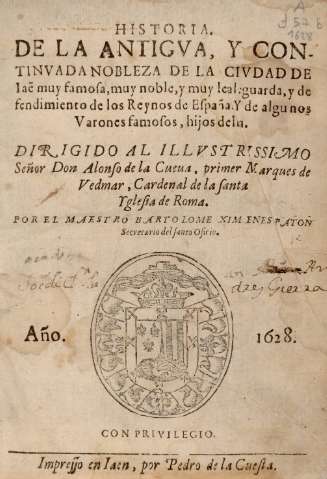 A
d 52 b
1628
HISTORIA.
DE LA ANTIGVA, Y CON-
TINVADA NOBLEZA DE LA CIVDAD DE
Iaẽ muy famosa, muy noble, y muy leal: guarda, y de
fendimiento de los Reynos de España. Y de algunos
Varones famosos, hijos della.
DIRIGIDO AL ILLVSTRISSIMO
Señor Don Alonso de la Cueua, primer Marques de
Vedmar, Cardenal de la santa
Yglesia de Roma.
POR EL MAESTRO BARTOLOME XIMENES PATOÑ
Secretario del santo Oficio.
Año. 1628.
CON PRIVILEGIO.
Impresso en Iaen, por Pedro de la Cuesta.